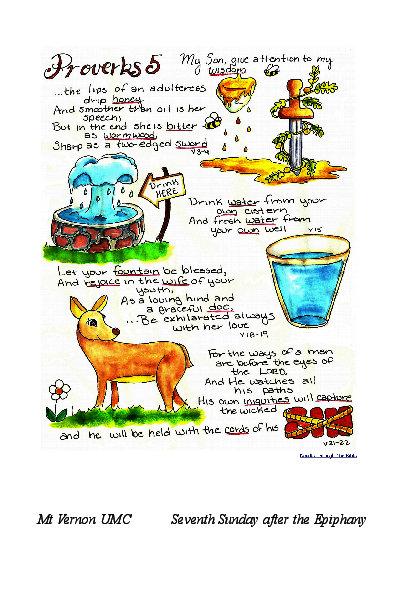 Proverbs 5
My Son, give attention to my
wisdom
...the lips of an adulteress
drip honey
And smoother than oil is her
speech;
But in the end she is bitter
as wormwood,
Sharp as a two-edged sword
V3-4
Drink
HERE
Drink water from your
own cistern
And fresh water from
your own well
V15
Let your fountain be blessed,
And rejoice in the wife of your
youth,
As a loving hind and
a graceful doe,
...Be exhilarated always
with her love
V18-19
For the ways of a man
are before the eyes of
the LORD,
And He watches all
his paths
His own iniquities will capture
the wicked
and he will be held with the cords of his
V21-22
Mt Vernon UMC
Seventh Sunday after the Epiphany